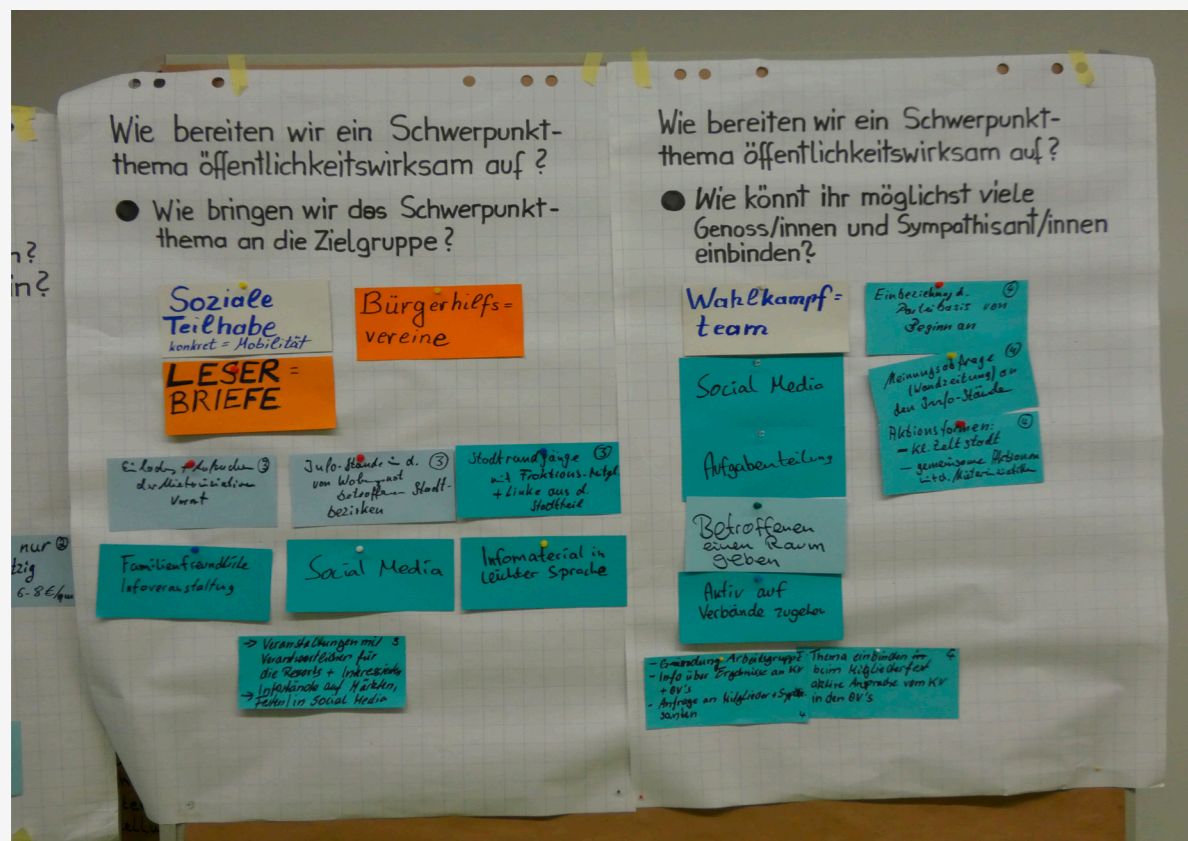 n?
in?
nur ②
tzig
6-8 €/qm
Wie bereiten wir ein Schwerpunkt-
thema öffentlichkeitswirksam auf?
Wie bringen wir das Schwerpunkt-
thema an die Zielgruppe?
Soziale
Teilhabe
konkret = Mobilität
Bürgerhilfs=
vereine
LESER=
BRIEFE
Einladen + Aufsuchen ③
der Mieterinitiativen
Vorort
Info-Stände in d. ③
von Wohnungsnot
betroffenen Stadt-
bezirken
Stadtrundgänge ③
mit Fraktions-Mitgl.
+ Linke aus d.
Stadtteil
Familienfreundliche
Infoveranstaltung
Social Media
Infomaterial in
Leichter Sprache
→ Veranstaltungen mit 3
Verantwortlichen für
die Resorts + Interessierte
→ Infostände auf Märkten,
Festen/in Social Media
Wie bereiten wir ein Schwerpunkt-
thema öffentlichkeitswirksam auf?
Wie könnt ihr möglichst viele
Genoss/innen und Sympathisant/innen
einbinden?
Wahlkampf=
team
Einbeziehung d. ④
Parteibasis von
Beginn an
Social Media
Aufgabenteilung
Meinungsabfrage ④
(Wandzeitung) an
den Info-Stände
Aktionsformen: ④
- kl. Zeltstadt
- gemeinsame Aktionen
mit d. Mieterinitiativen
Betroffenen
einen Raum
geben
Aktiv auf
Verbände zugehen
- Gründung Arbeitsgruppe
- Info über Ergebnisse an KV
+ BV's
- Anfrage an Mitglieder + Sympathi-
santen 4
Thema einbinden 4
beim Mitgliederfest
aktive Ansprache vom KV
in den BV's